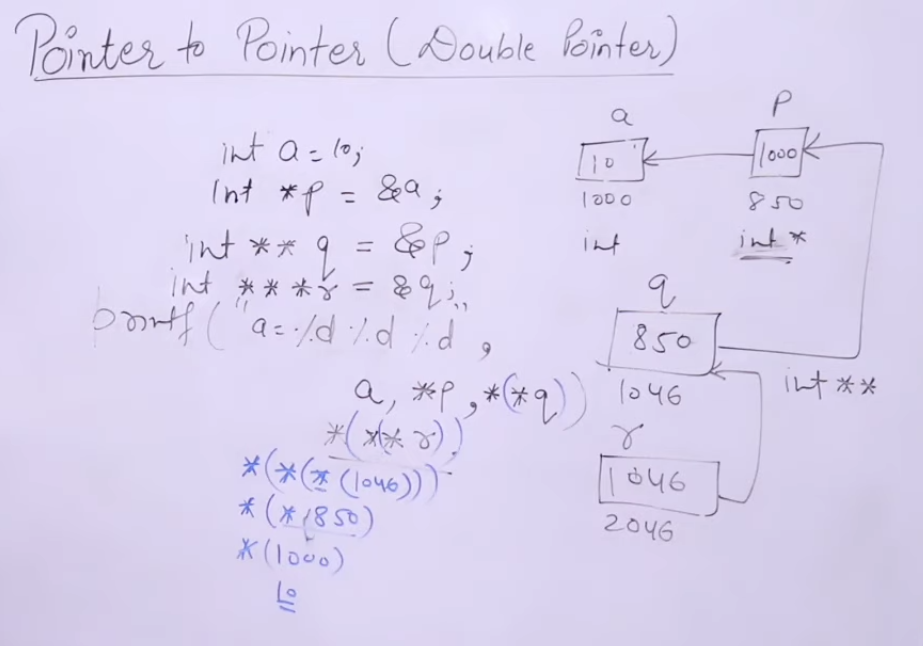 Pointer to Pointer (Double Pointer)
int a = 10;
int *p = &a;
int ** q = &p;
int ***r = &q;
printf("a=%d %d %d",
a, *p, *(*q))
*(*(*r))
*(*(*(1046)))
*(*850)
*(1000)
10
a
10
1000
int
p
1000
850
int *
q
850
1046
int **
r
1046
2046